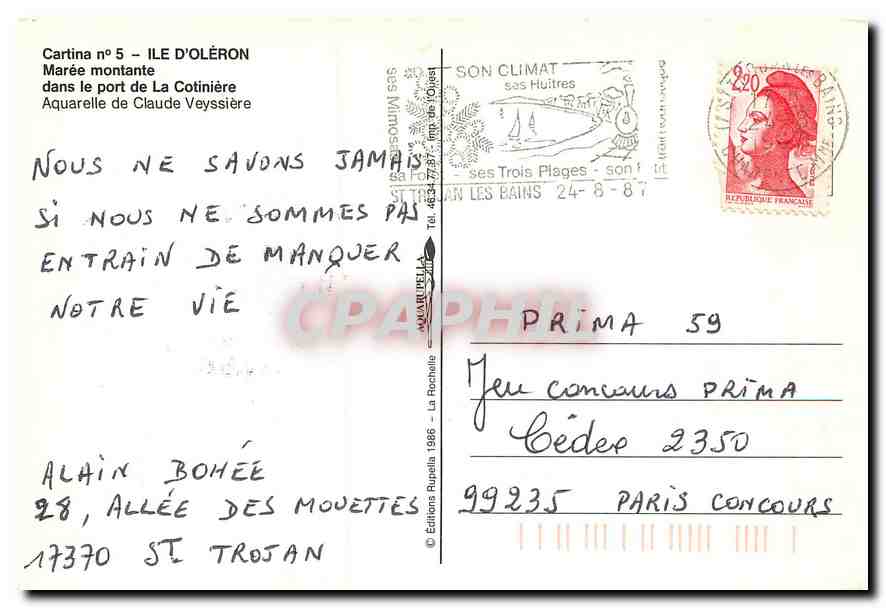 Cartina nº 5 – ILE D'OLÉRON
Marée montante
dans le port de La Cotinière
Aquarelle de Claude Veyssière
NOUS NE SAVONS JAMAIS
SI NOUS NE SOMMES PAS
ENTRAIN DE MANQUER
NOTRE VIE
ALAIN BOHÉE
28, ALLÉE DES MOUETTES
17370 ST TROJAN
© Éditions Rupella 1986 – La Rochelle
AQUARUPELLA
Tél. 46.34.77.87 - Imp. de l'Ouest
ses Mimosas
SON CLIMAT
ses Huîtres
sa Fo - ses Trois Plages - son P tit
ST TROJAN LES BAINS 24-8-87
2,20
REPUBLIQUE FRANÇAISE
CPAPHIL
PRIMA 59
Jeu concours PRIMA
Cédex 2350
99235 PARIS CONCOURS